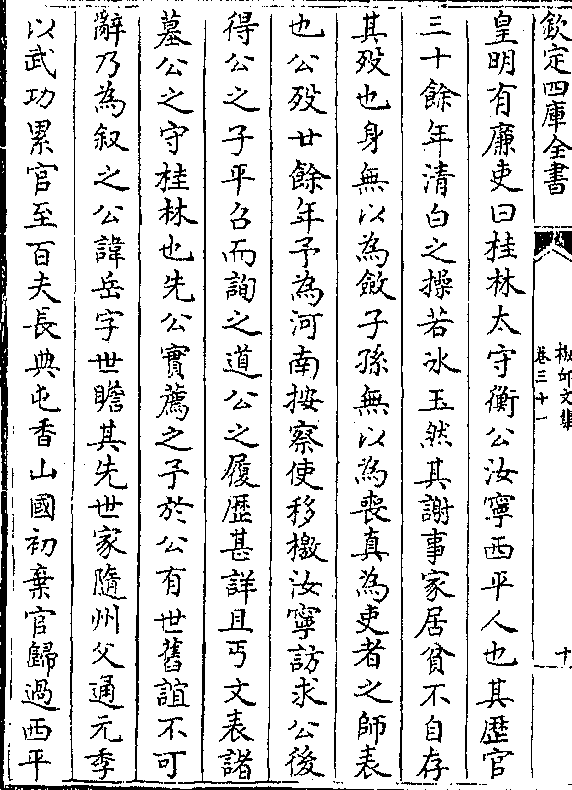 欽定四庫全書
卷三十一
皇明有廉吏曰桂林太守衡公汝寧西平人也其歴官
三十餘年清白之操若冰玉然其謝事家居貧不自存
其歿也身無以為斂子孫無以為喪真為吏者之師表
也公歿廿餘年予為河南按察使移檄汝寧訪求公後
得公之子平召而詢之道公之履歴甚詳且丐文表諸
墓公之守桂林也先公實薦之予於公有世舊誼不可
辭乃為叙之公諱岳字世瞻其先世家隨州父通元季
以武功累官至百夫長典屯香山國初棄官歸過西平